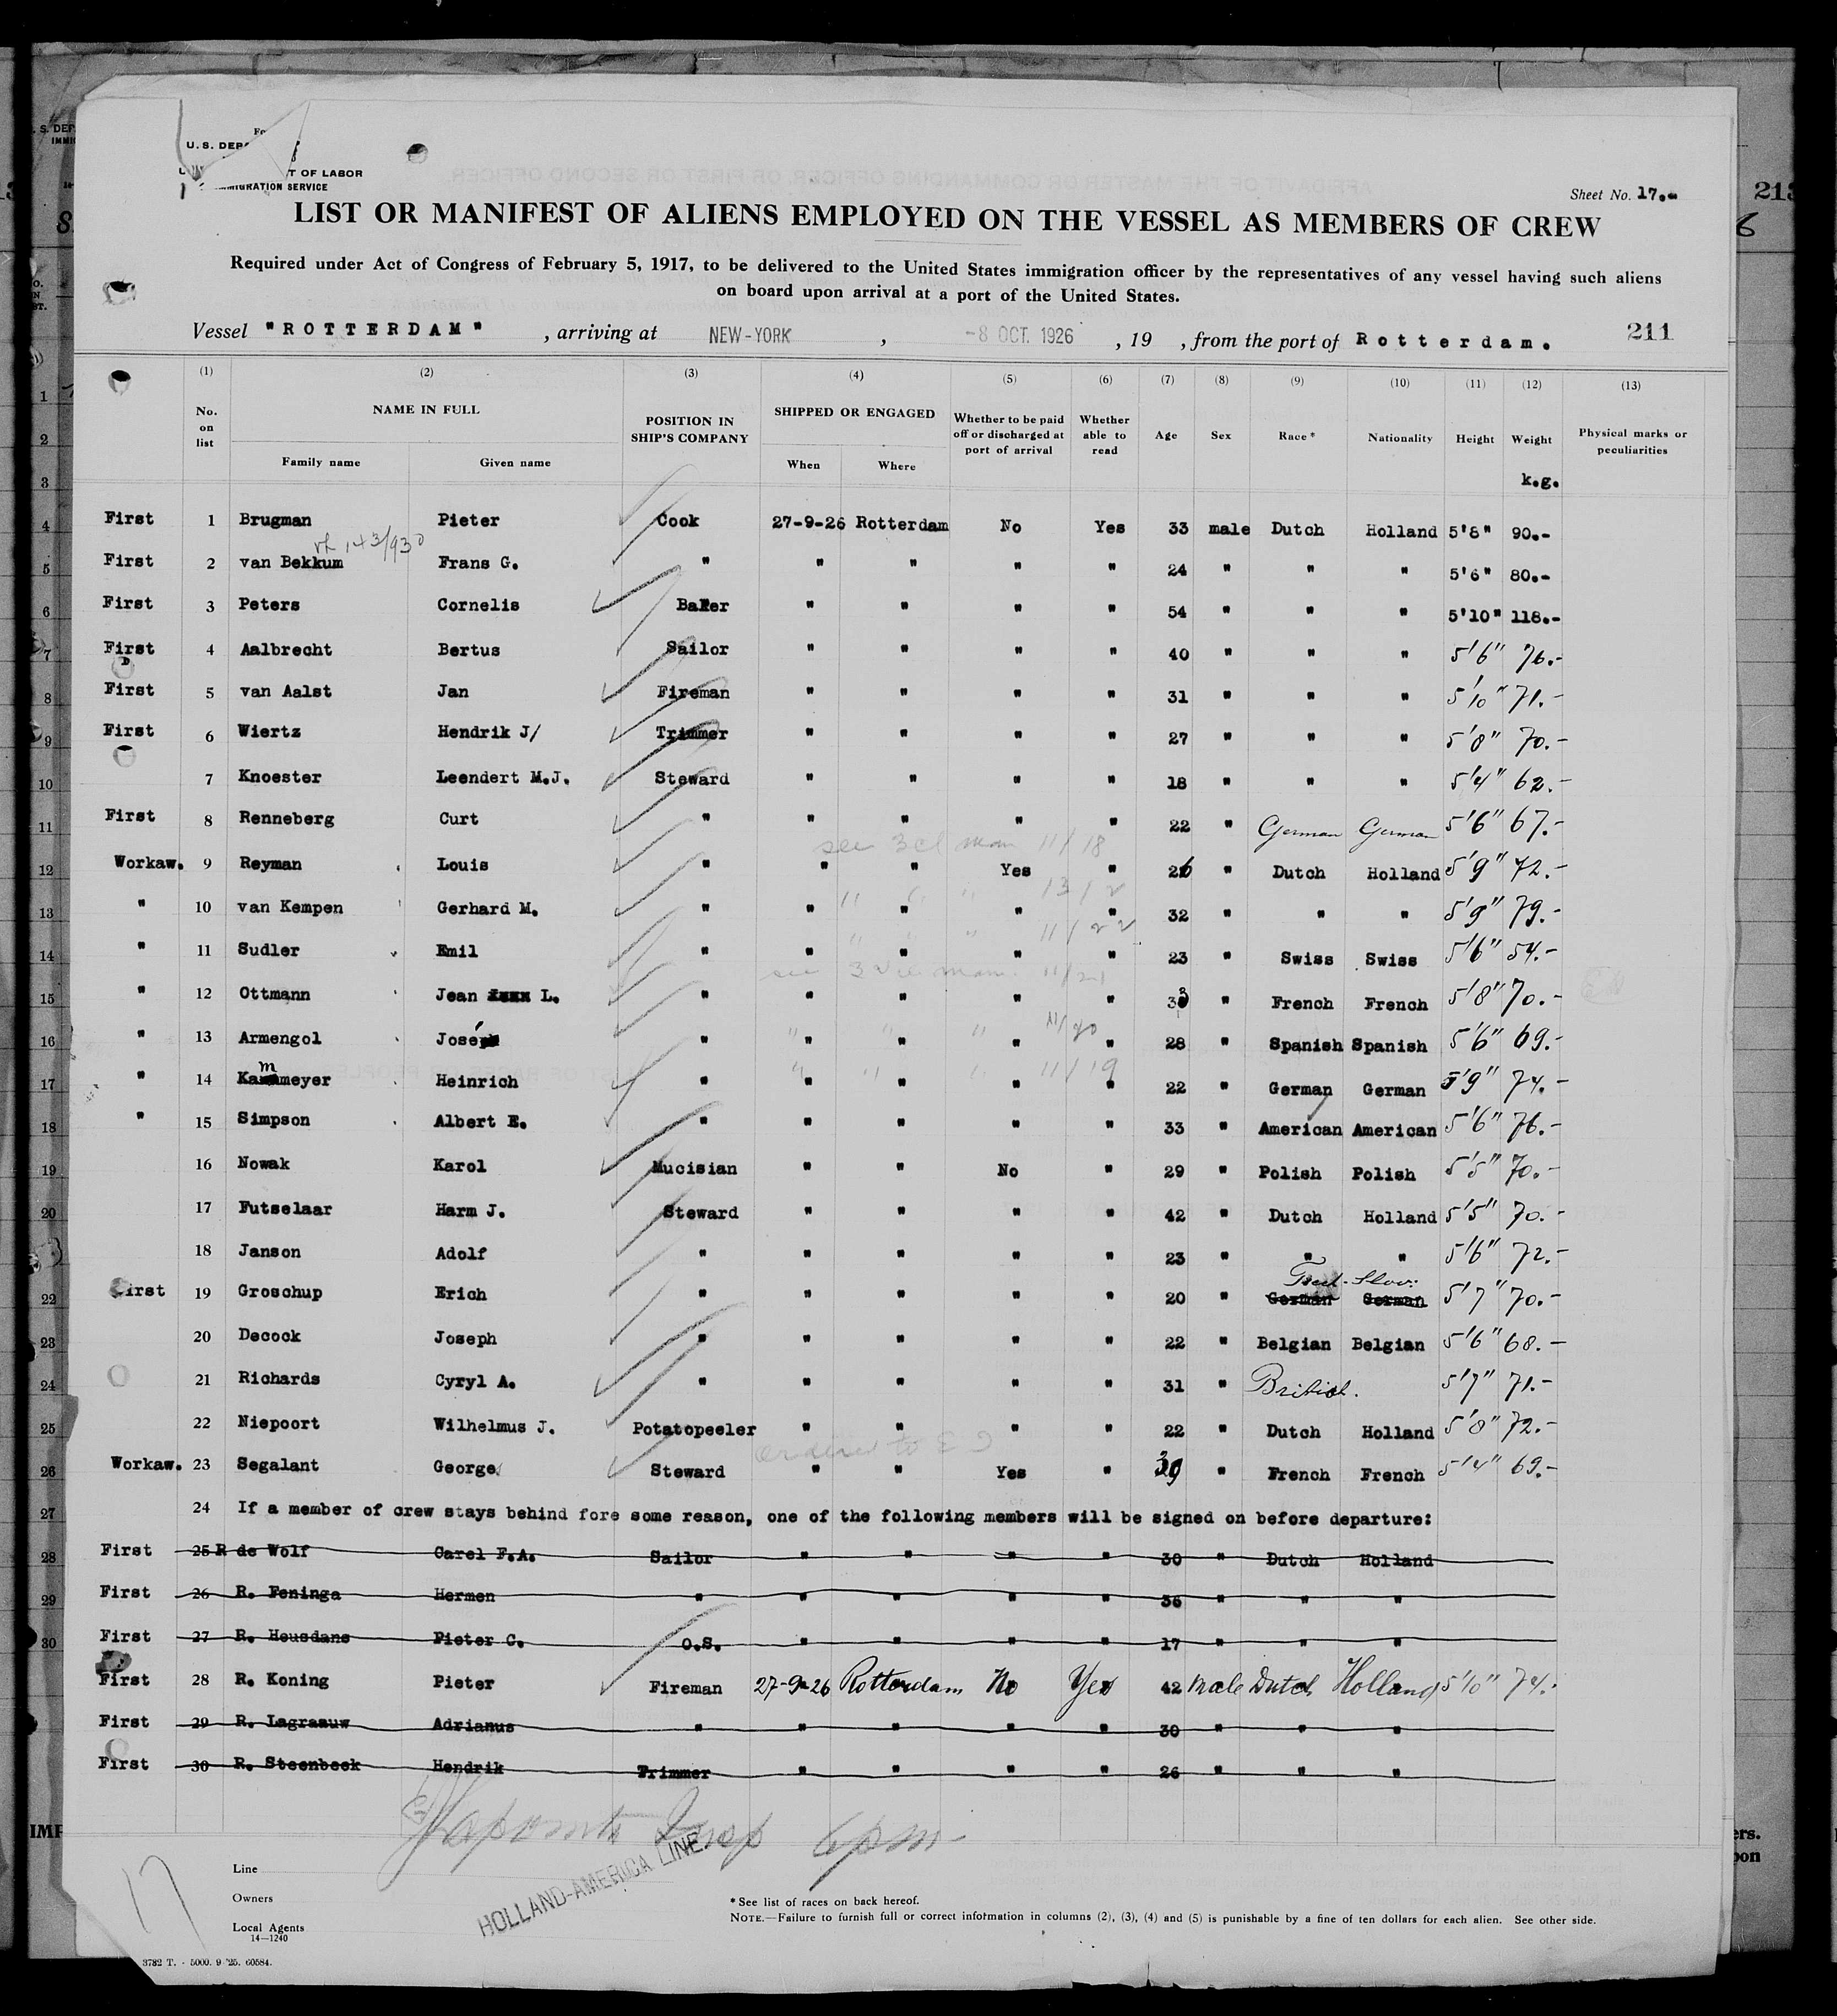 U.S. DEP
T OF LABOR
IMMIGRATION SERVICE
Sheet No. 17.-
LIST OR MANIFEST OF ALIENS EMPLOYED ON THE VESSEL AS MEMBERS OF CREW
Required under Act of Congress of February 5, 1917, to be delivered to the United States immigration officer by the representatives of any vessel having such aliens
on board upon arrival at a port of the United States.
Vessel "ROTTERDAM" , arriving at NEW-YORK , -8 OCT. 1926 , 19 , from the port of Rotterdam. 211
(1) (2) (3) (4) (5) (6) (7) (8) (9) (10) (11) (12) (13)
No. on list NAME IN FULL Family name Given name POSITION IN SHIP'S COMPANY SHIPPED OR ENGAGED When Where Whether to be paid off or discharged at port of arrival Whether able to read Age Sex Race* Nationality Height Weight Physical marks or peculiarities
k.g.
First 1 Brugman Pieter Cook 27-9-26 Rotterdam No Yes 33 male Dutch Holland 5'8" 90.-
First 2 van Bekkum Frans G. " " " " " 24 " " " 5'6" 80.-
First 3 Peters Cornelis Baker " " " " 54 " " " 5'10" 118.-
First 4 Aalbrecht Bertus Sailor " " " " 40 " " " 5'6" 76.-
First 5 van Aalst Jan Fireman " " " " 31 " " " 5'10" 71.-
First 6 Wiertz Hendrik J/ Trimmer " " " " 27 " " " 5'8" 70.-
7 Knoester Leendert M.J. Steward " " " " 18 " " " 5'4" 62.-
First 8 Renneberg Curt " " " " " 22 " German German 5'6" 67.-
see 3 cl man 11/18
Workaw. 9 Reyman Louis " " " Yes " 26 " Dutch Holland 5'9" 72.-
" 10 van Kempen Gerhard M. " " " " " 32 " " " 5'9" 79.-
11/22
" 11 Sudler Emil " " " " " 23 " Swiss Swiss 5'6" 54.-
11/21
" 12 Ottmann Jean L. " " " " " 33 " French French 5'8" 70.-
11/20
" 13 Armengol José " " " " " 28 " Spanish Spanish 5'6" 69.-
11/19
" 14 Kammeyer Heinrich " " " " " 22 " German German 5'9" 74.-
" 15 Simpson Albert E. " " " " " 33 " American American 5'6" 76.-
16 Nowak Karol Mucisian " " No " 29 " Polish Polish 5'5" 70.-
17 Futselaar Harm J. Steward " " " " 42 " Dutch Holland 5'5" 70.-
18 Janson Adolf " " " " " 23 " " " 5'6" 72.-
First 19 Groschup Erich " " " " " 20 " German German 5'7" 70.-
20 Decock Joseph " " " " " 22 " Belgian Belgian 5'6" 68.-
21 Richards Cyryl A. " " " " " 31 " British. 5'7" 71.-
22 Niepoort Wilhelmus J. Potatopeeler " " " " 22 " Dutch Holland 5'8" 72.-
Workaw. 23 Segalant George Steward " " Yes " 39 " French French 5'4" 69.-
24 If a member of crew stays behind fore some reason, one of the following members will be signed on before departure:
First 25 R de Wolf Carel F.A. Sailor " " " " 30 " Dutch Holland
First 26 R. Feninga Hermen " " " " " 36 " " "
First 27 R. Heusdans Pieter C. O.S. " " " " 17 " " "
First 28 R. Koning Pieter Fireman 27-9-26 Rotterdam No Yes 42 male Dutch Holland 5'10" 74.-
First 29 R. Lagraauw Adrianus " " " " " 30 " " "
First 30 R. Steenbeek Hendrik Trimmer " " " " 26 " " "
6 pm
17
Line
HOLLAND-AMERICA LINE.
Owners
Local Agents
14—1240
* See list of races on back hereof.
NOTE.—Failure to furnish full or correct information in columns (2), (3), (4) and (5) is punishable by a fine of ten dollars for each alien. See other side.
3782 T. - 5000. 9-'25. 60584.